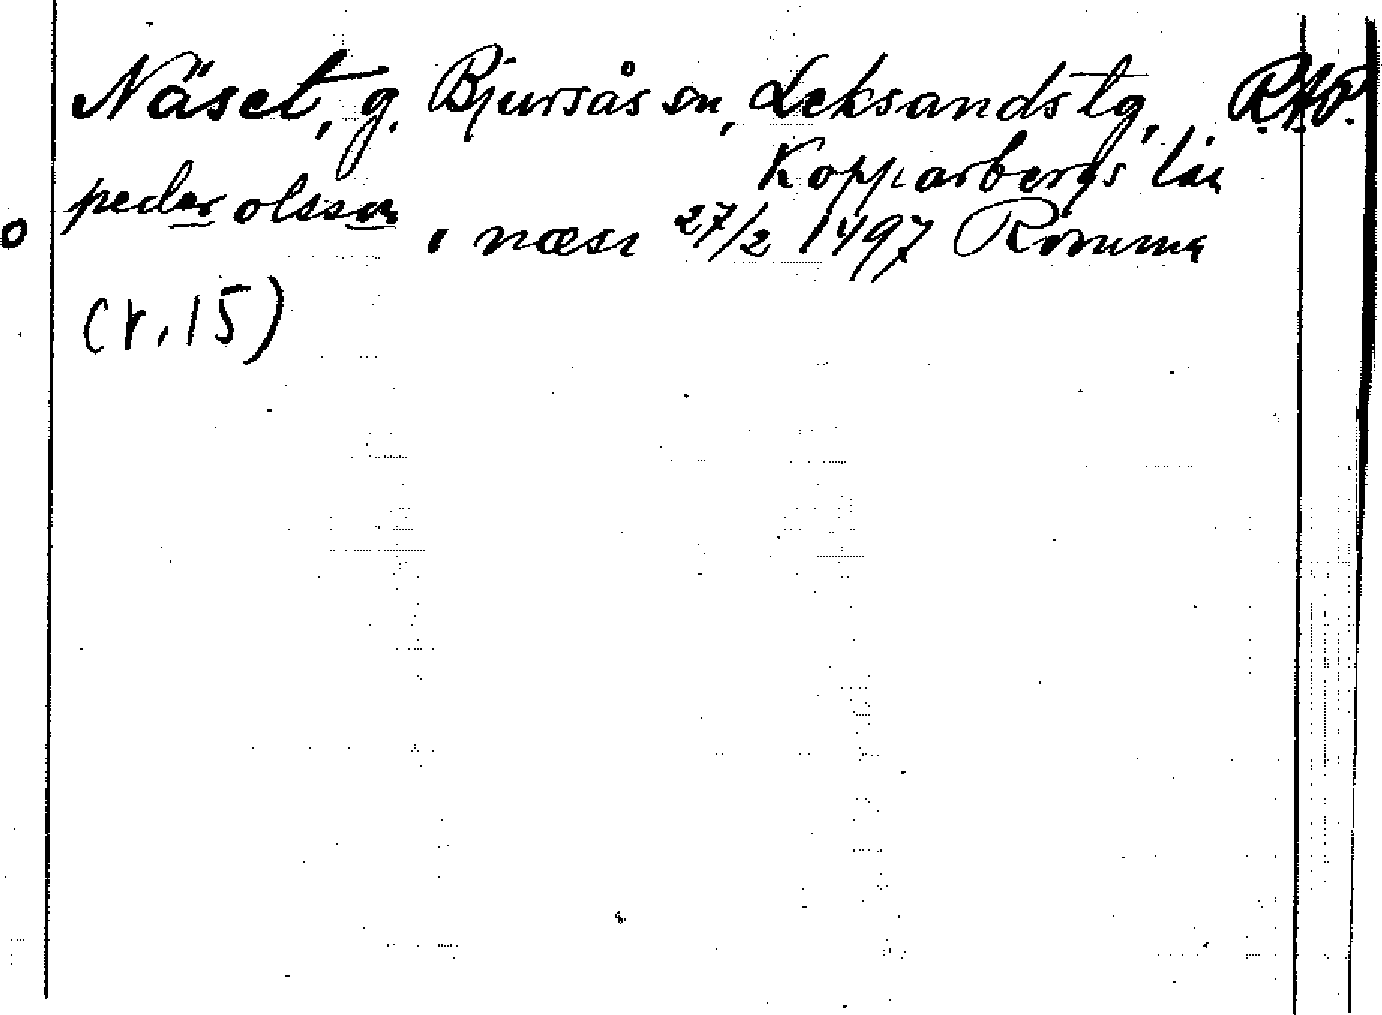 Näset, g. Bjursås sn, Leksands tg, R.A.P.
Kopparbergs län
peder olsson i næsi 27/2 1497 Romma
(r. 15)